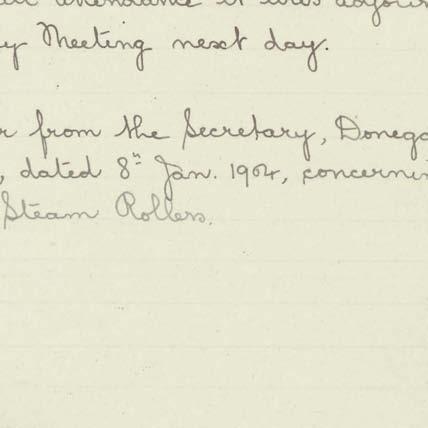 attendance it was adjour
y Meeting next day.
r from the Secretary, Donega
, dated 8th Jan. 1904, concernin
Steam Rollers.